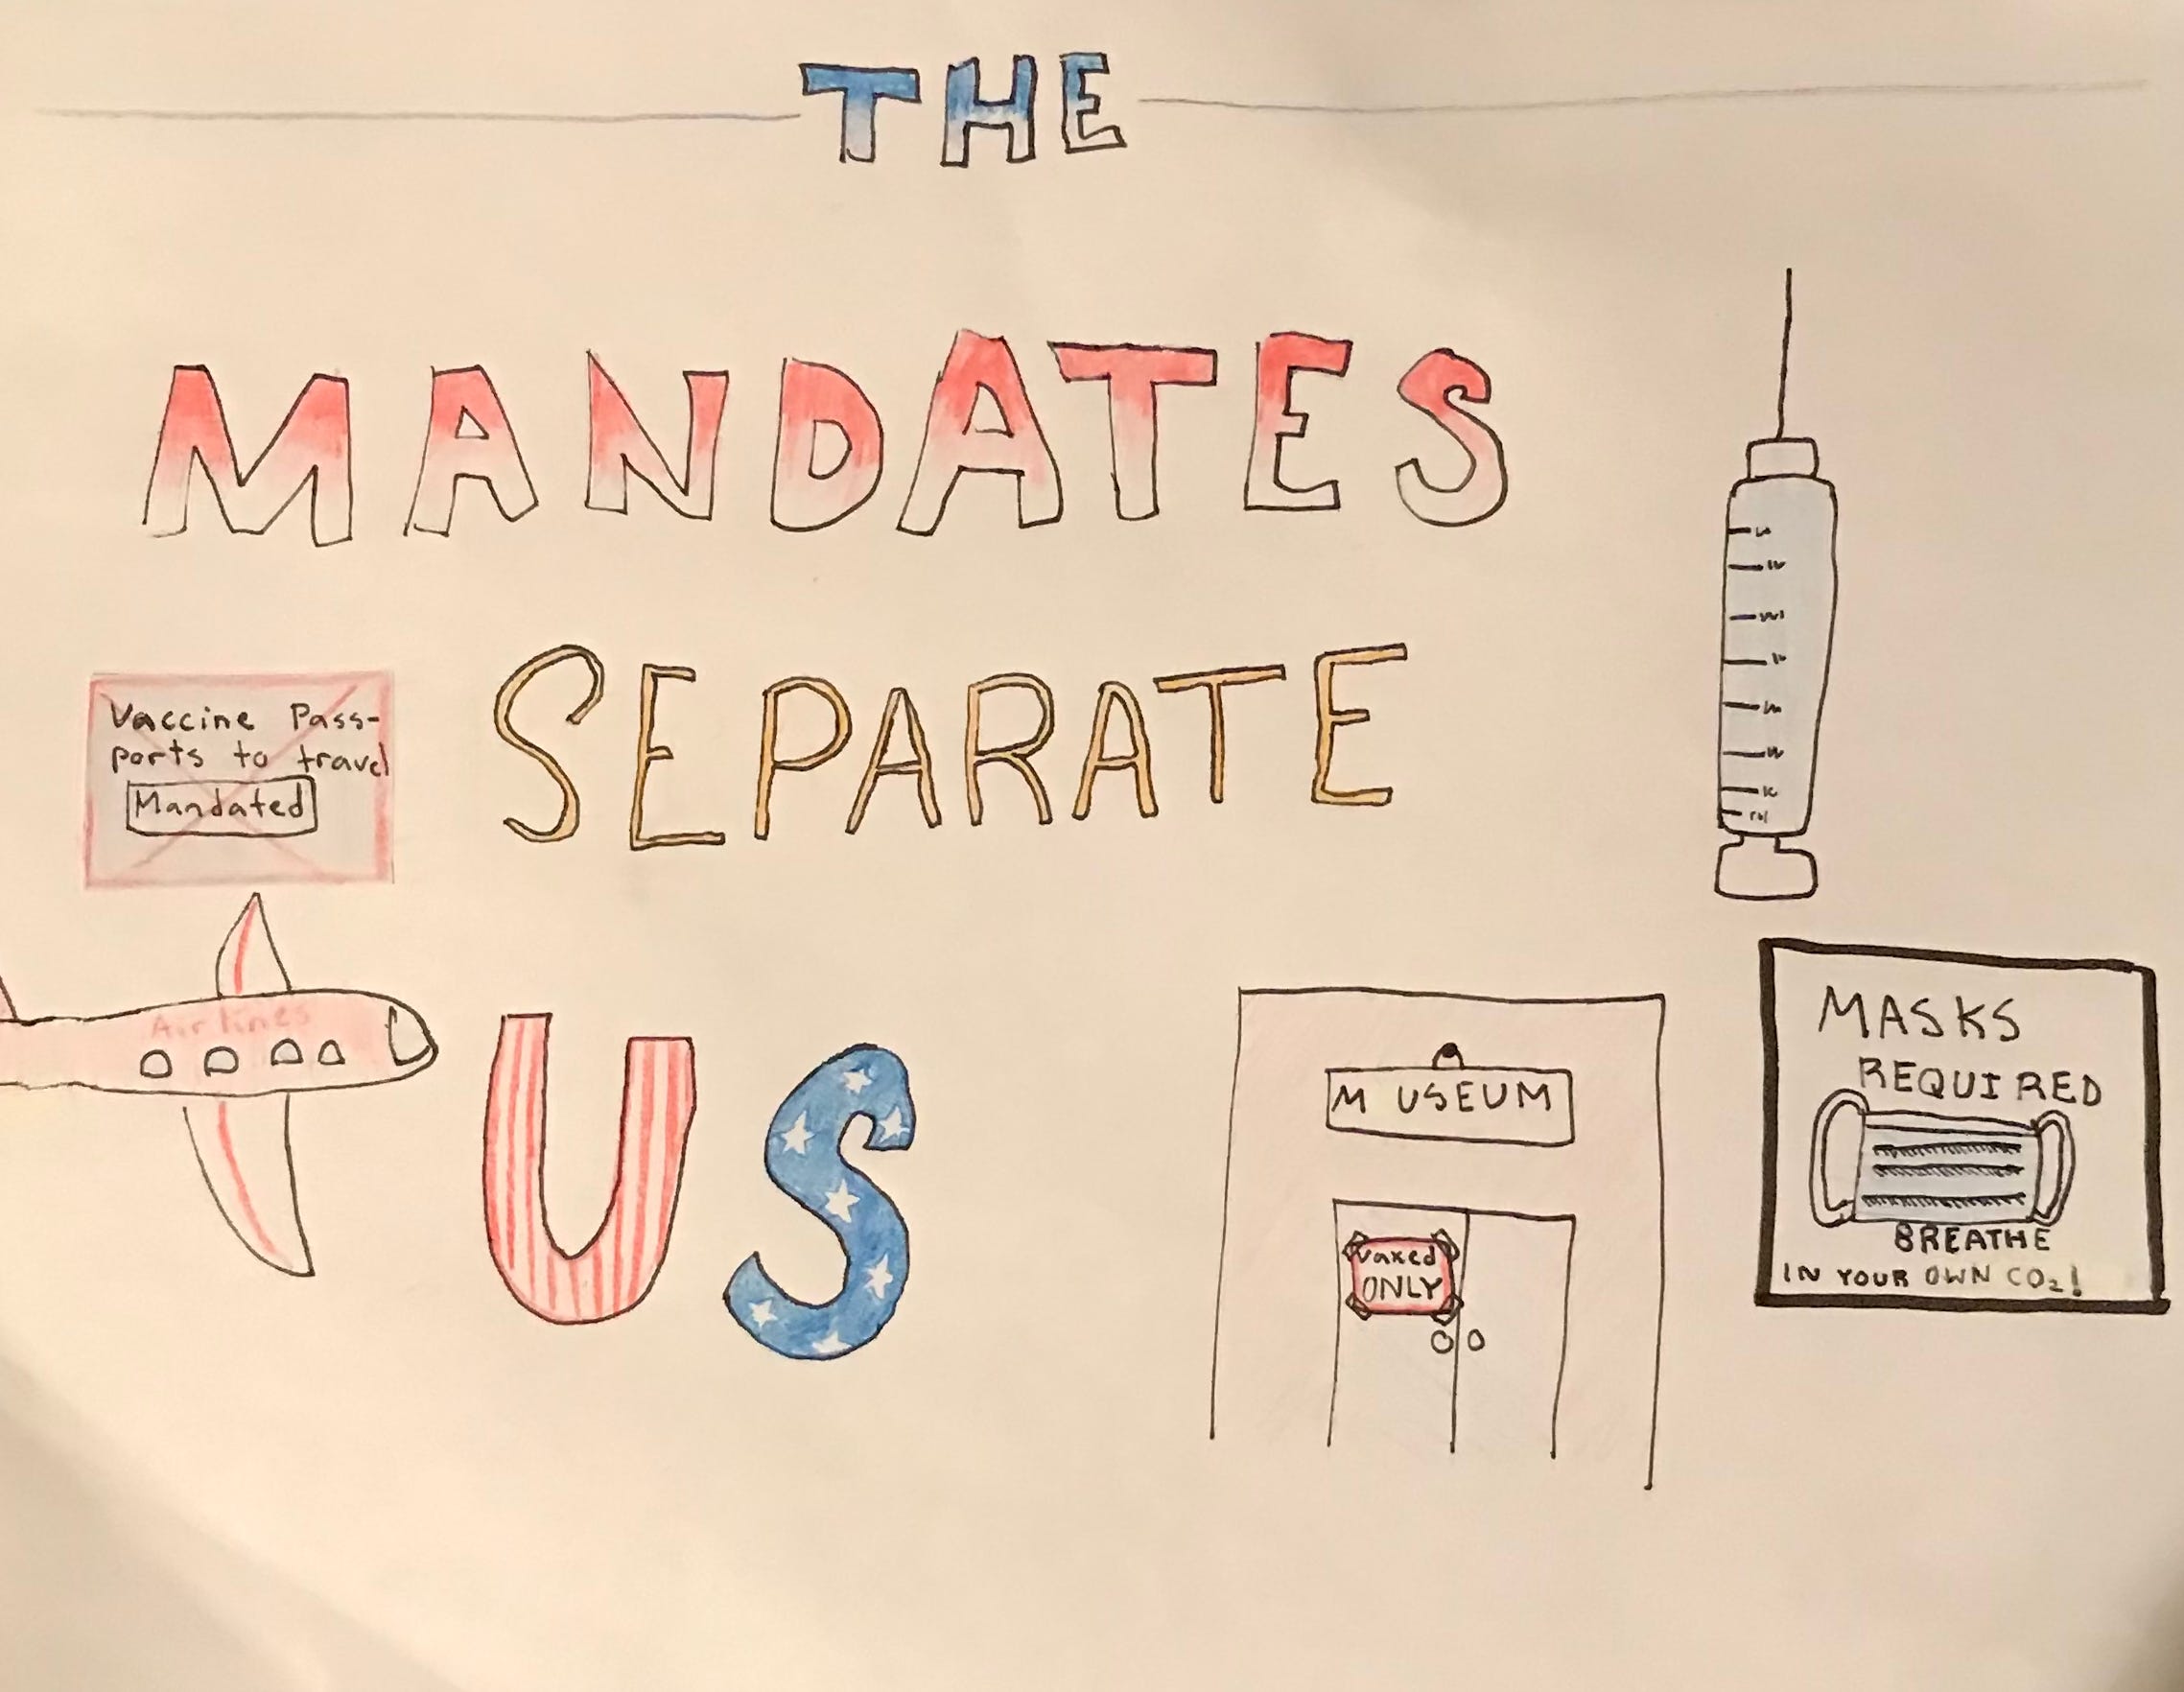 THE
MANDATES
SEPARATE
Vaccine Pass-
ports to travel
Mandated
Airlines
US
MUSEUM
Vaxed
ONLY
MASKS
REQUIRED
BREATHE
IN YOUR OWN CO₂!